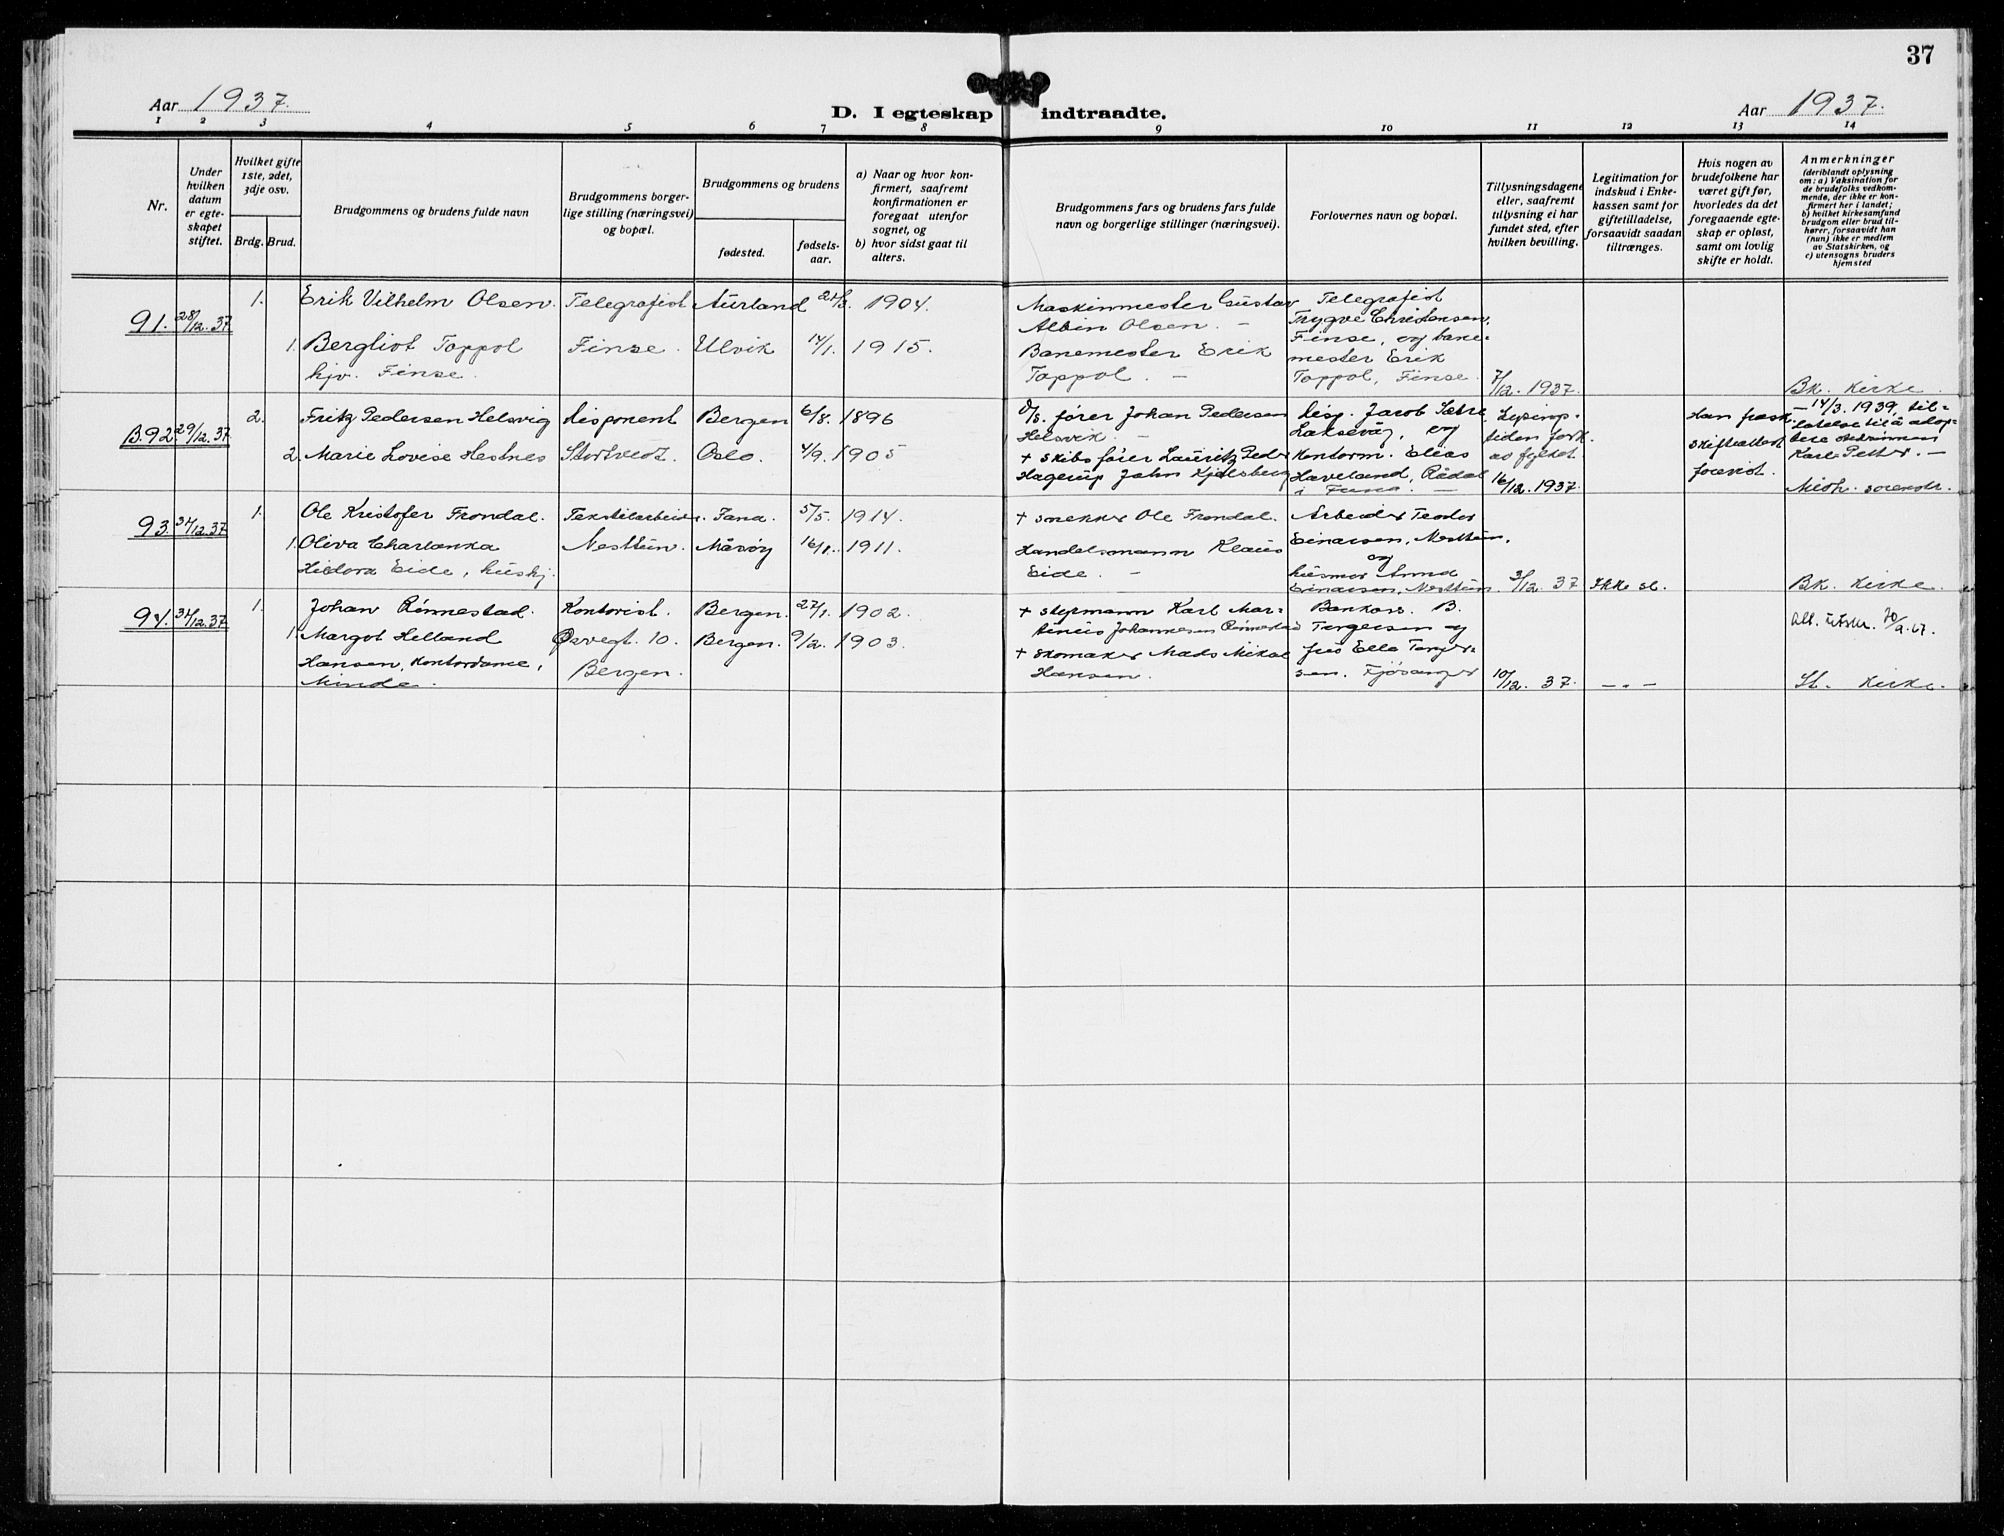 37
Aar 1937.
D. I egteskap indtraadte.
Aar 1937.
1 2 3 4 5 6 7 8 9 10 11 12 13 14
Nr.
Under
hvilken
datum
er egte-
skapet
stiftet.
Hvilket gifte
1ste, 2det,
3dje osv.
Brdg. Brud.
Brudgommens og brudens fulde navn
Brudgommens borger-
lige stilling (næringsvei)
og bopæl.
Brudgommens og brudens
fødested.
fødsels-
aar.
a) Naar og hvor kon-
firmert, saafremt
konfirmationen er
foregaat utenfor
sognet, og
b) hvor sidst gaat til
alters.
Brudgommens fars og brudens fars fulde
navn og borgerlige stillinger (næringsvei).
Forlovernes navn og bopæl.
Tillysningsdagene
eller, saafremt
tillysning ei har
fundet sted, efter
hvilken bevilling.
Legitimation for
indskud i Enke-
kassen samt for
giftetilladelse,
forsaavidt saadan
tiltrænges.
Hvis nogen av
brudefolkene har
været gift før,
hvorledes da det
foregaaende egte-
skap er opløst,
samt om lovlig
skifte er holdt.
Anmerkninger
(deriblandt oplysning
om: a) Vaksination for
de brudefolks vedkom-
mende, der ikke er kon-
firmert her i landet;
b) hvilket kirkesamfund
brudgom eller brud til-
hører, forsaavidt han
(hun) ikke er medlem
av Statskirken, og
c) utensogns bruders
hjemsted
91. 28/12.37
1. Erik Vilhelm Olsen. Telegrafist Aurland 1904.
1. Bergliot Toppol Finse. Ulvik 14/1. 1915.
hjv. Finse.
Maskinmester Gustav
Albin Olsen. –
Banemester Erik
Toppol. –
Telegrafist
Trygve Christensen,
Finse, og bane-
mester Erik
Toppol, Finse.
7/12. 1937.
Bk. kirke.
B.92. 29/12.37
2. Fritz Pedersen Helsvig disponent Bergen 6/8. 1896
2. Marie Lovise Hestnes Stortveit Oslo. 4/9. 1905
D/s. fører Johan Pedersen
Helsvik. –
+ skibsfører Lauritz Peder
Hagerup Jahn Kjelsberg
disp. Jacob Sætre
Laksevåg, og
Kontorm. Elias
Haveland, Rådal
i Fana. –
Lysings-
tiden fork.
av fylket.
16/12. 1937.
Han frask.
skifteattest
forevist.
– 14/3. 1939, til-
latelse til å adop-
tere
Karl Petter. –
93. 31/12.37
1. Ole Kristofer Frondal. Tekstilarbeider. Fana. 5/5. 1914.
1. Oliva Charlanka Nesttun. Måsøy 16/1. 1911.
Hildora Eide, hushj.
+ snekker Ole Frondal.
Handelsmann Klaus
Eide. –
Arbeider Teodor
Einarsen, Nesttun,
og
husmor Anna
Einarsen, Nesttun.
3/12. 37
Ikke sl.
Bk. kirke.
94. 31/12.37
1. Johan Rinnestad. Kontorist. Bergen. 27/1. 1902.
1. Margot Helland Øsvegt. 10. Bergen. 9/2. 1903.
Hansen, kontordame, Bergen.
Minde.
+ styrmann Karl Mar-
tinius Johannesen Rinnestad
+ skomaker Mads Mikal
Hansen.
Bankass. B.
Torgersen og
frú Ella Torger-
sen. Fjøsanger
10/12. 37.
– " –
Att. utskr. 20/9.67.
St. kirke.